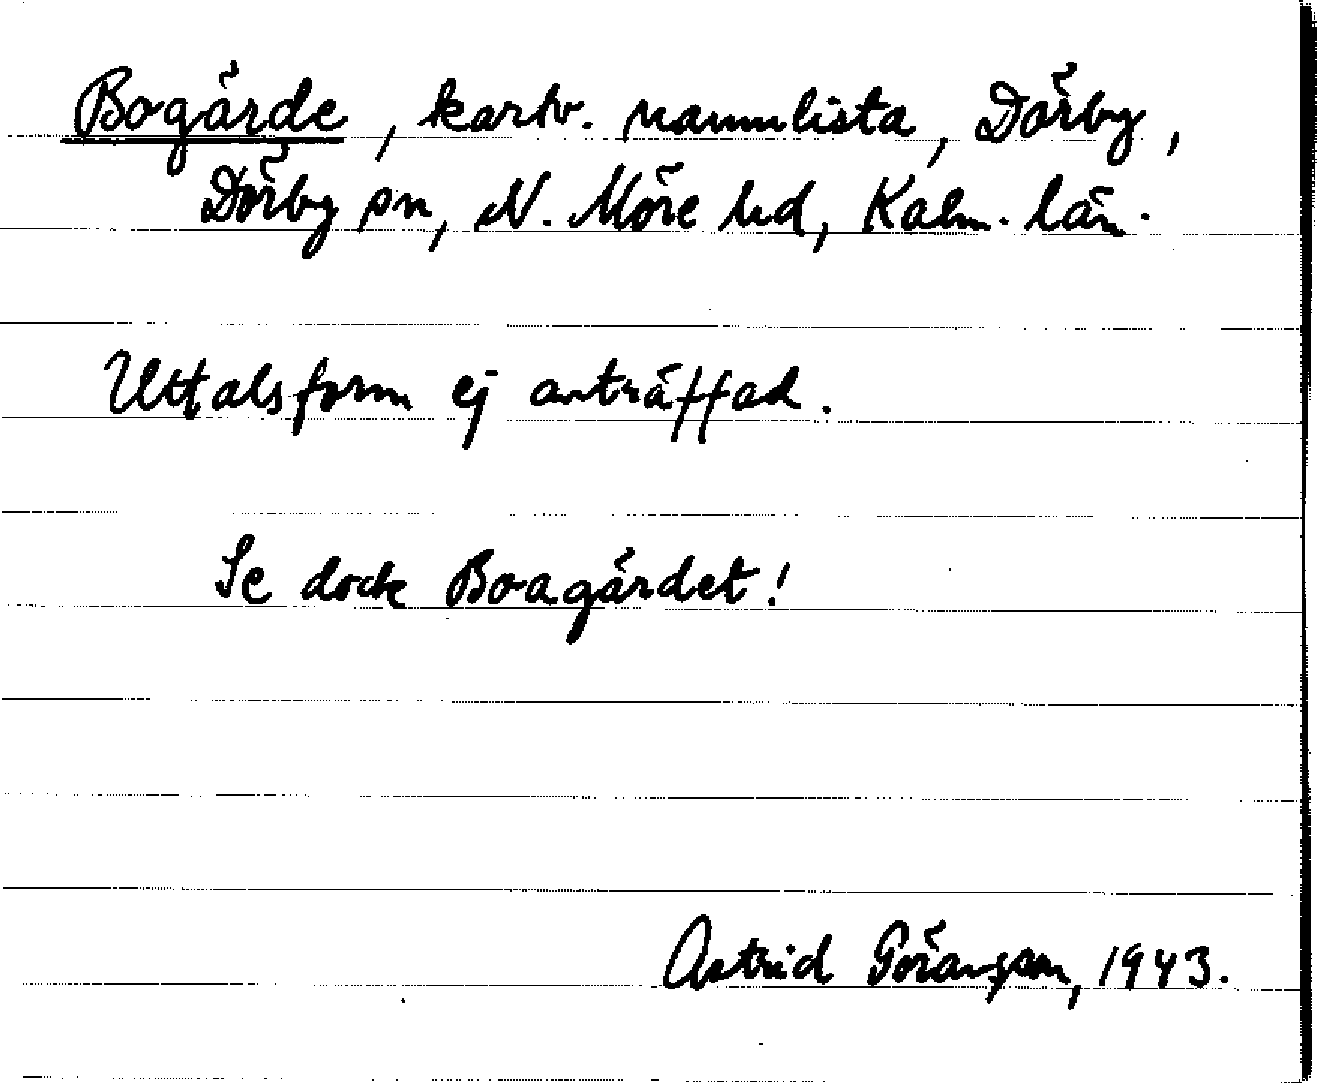 Bogärde, kartv. namnlista, Dörby,
Dörby sn, N. Möre hd, Kalm. län.
Uttalsform ej anträffad.
Se dock Boagärdet!
Astrid Göransson, 1943.